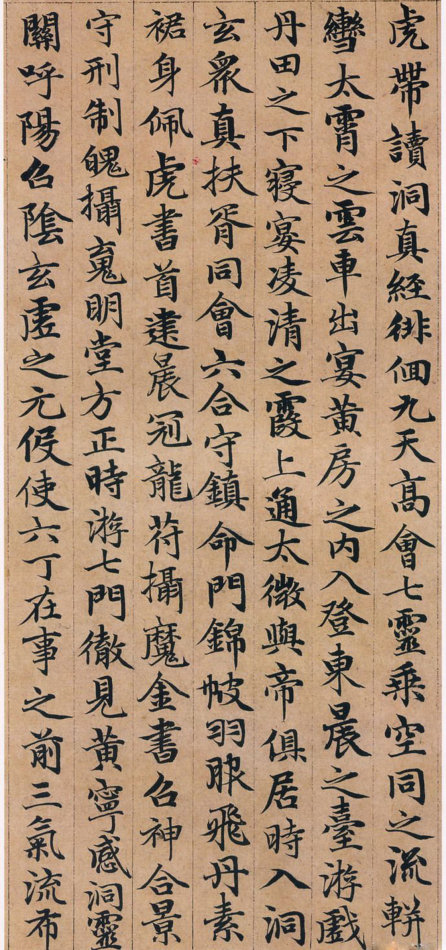 虎帶讀洞真經徘佪九天高會七靈乘空同之流軿
轡太霄之雲車出宴黃房之内入登東晨之臺游戲
丹田之下寢宴凌清之霞上通太微與帝俱居時入洞
玄衆真扶胥同會六合守鎮命門錦帔羽服飛丹素
裙身佩虎書首建晨冠龍苻攝魔金書召神合景
守刑制魄攝䰟明堂方正時游七門徹見黃寧感洞靈
關呼陽召陰玄虛之元役使六丁在事之前三氣流布